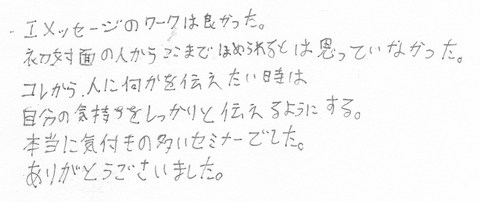 ・Iメッセージのワークは良かった。
初対面の人からここまでほめられるとは思っていなかった。
コレがら、人に何かを伝えたい時は
自分の気持ちをしっかりと伝えるようにする。
本当に気付もの多いセミナーでした。
ありがとうございました。